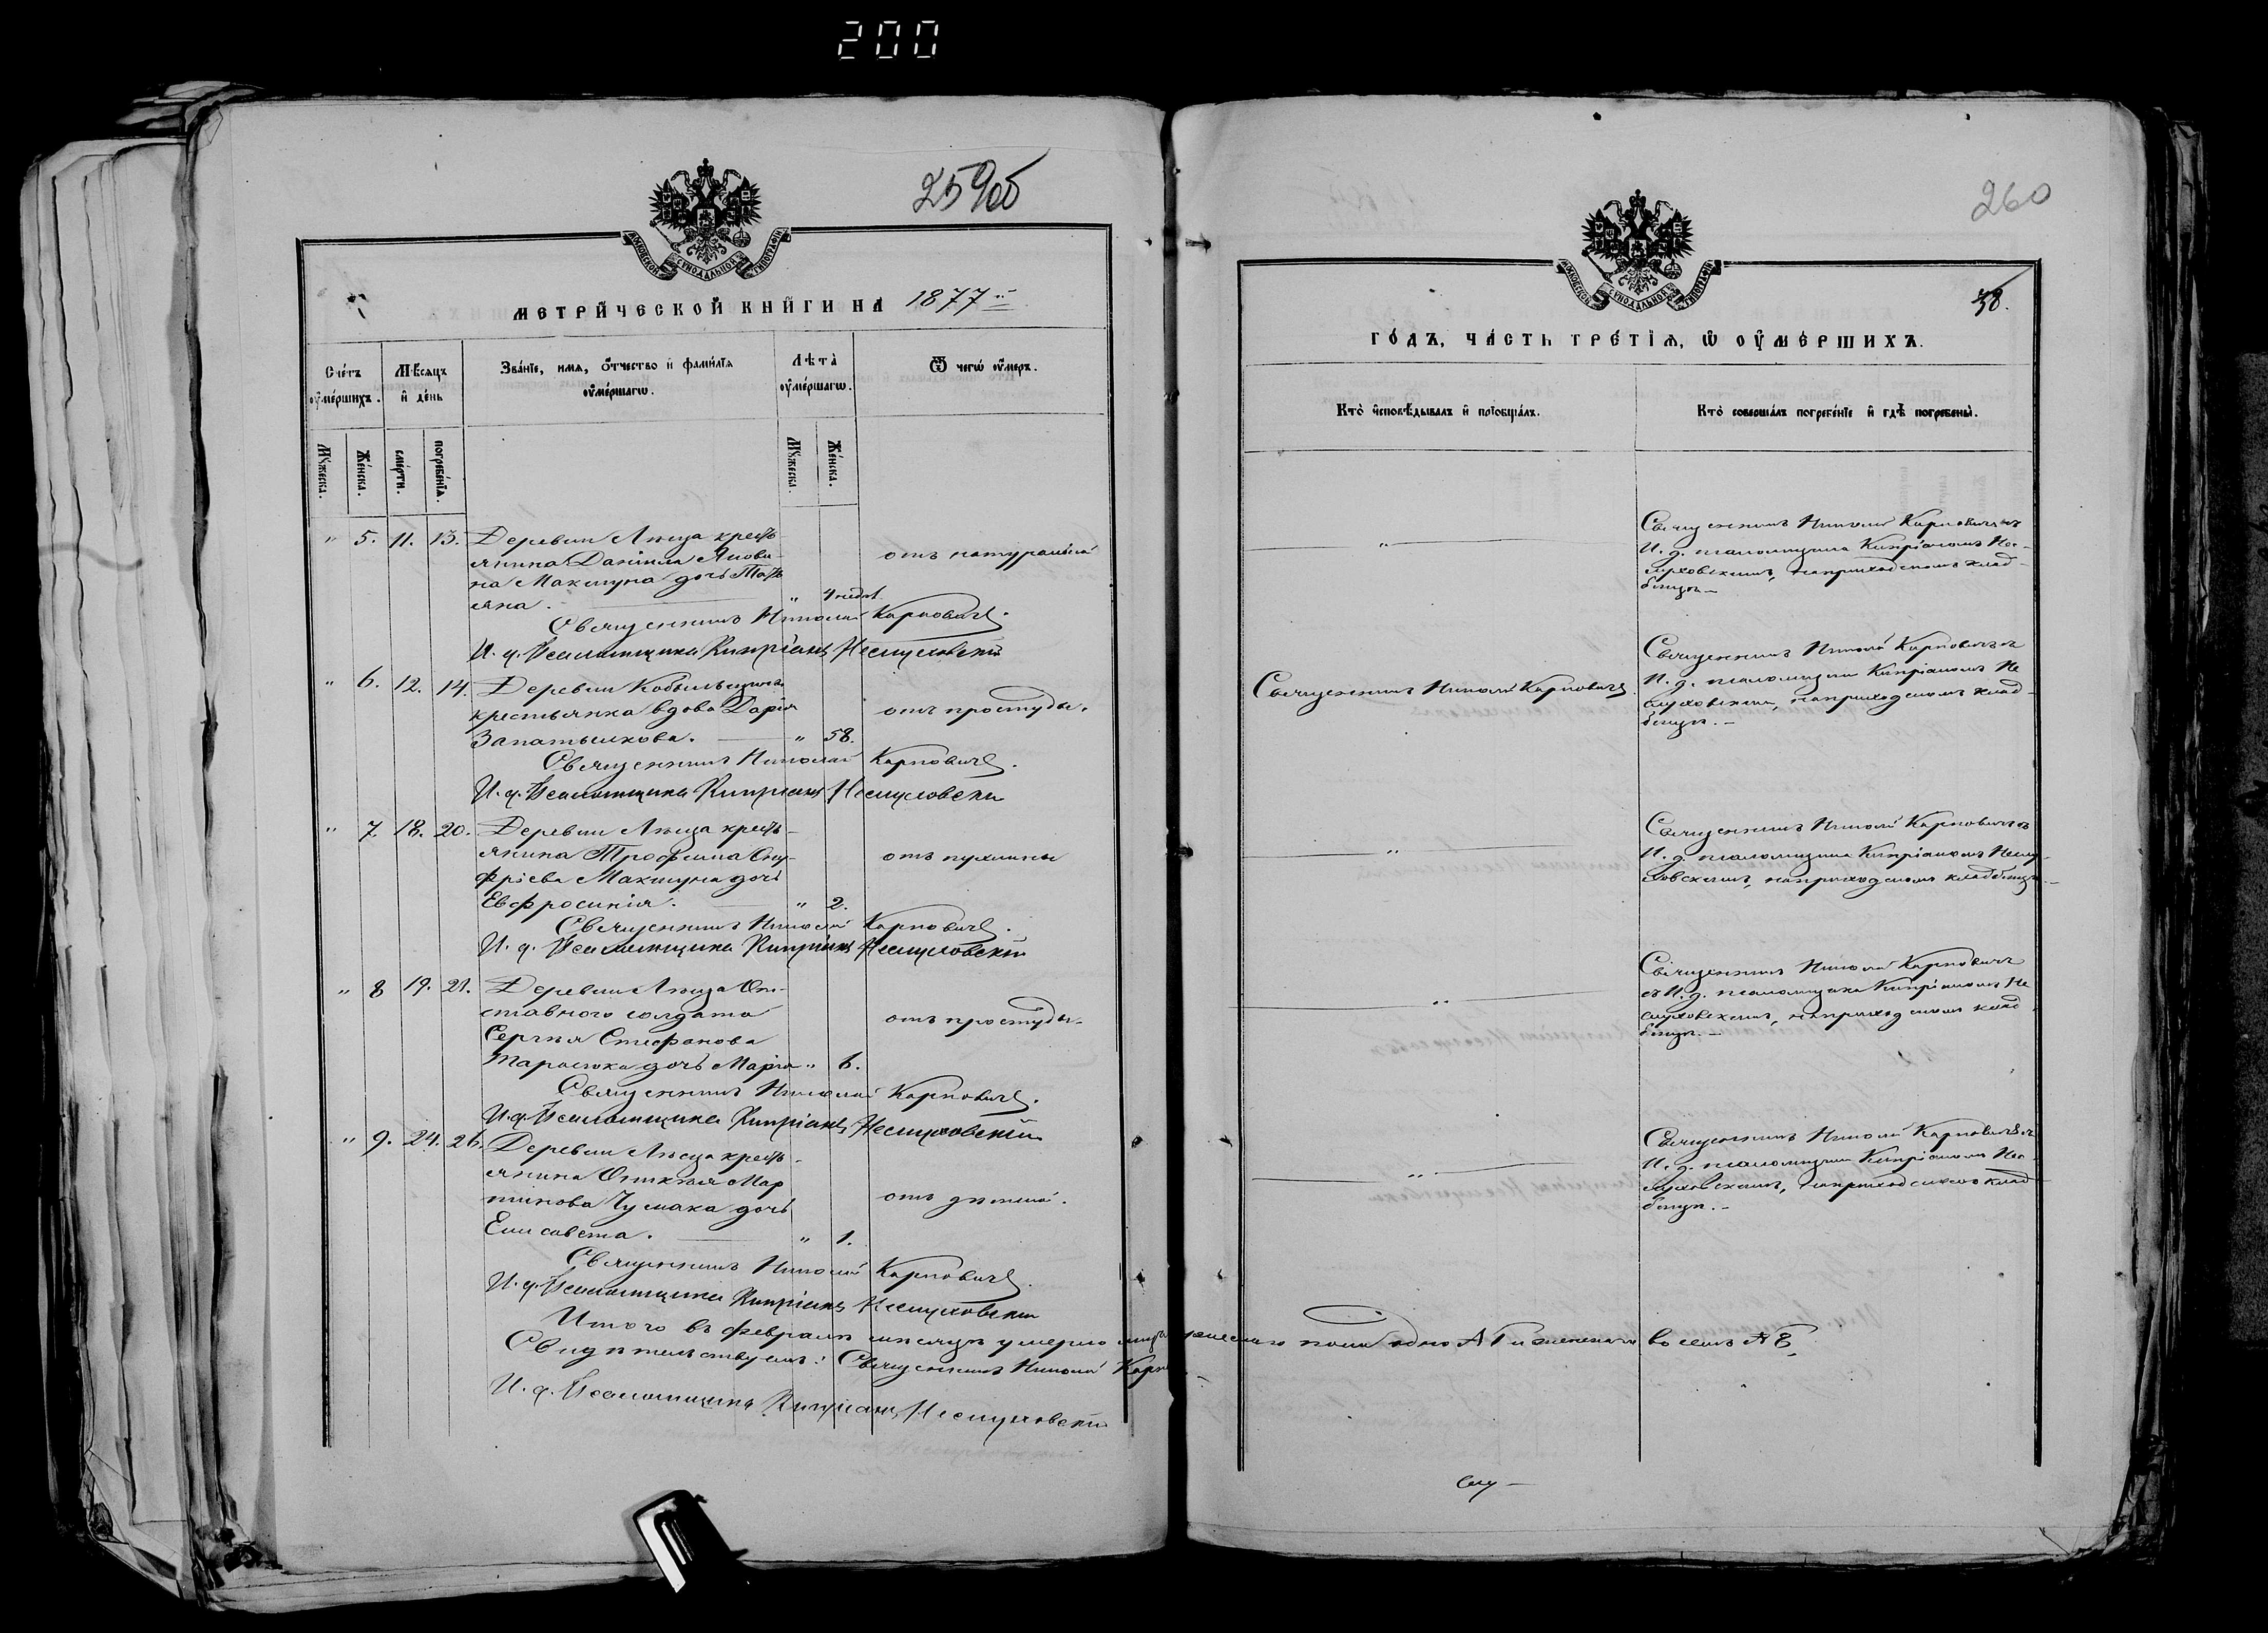 200
259об
МОСКОВСКОЙ СѴНОДАЛЬНОЙ ТИПОГРАФІИ
МЕТРИ́ЧЕСКОЙ КНИ́ГИ НА 1877й
Сче́тъ оу҆ме́ршихъ.
Мѣ́сяцъ и҆ де́нь
Зва́нїе, и́мѧ, ѻ҆́тчество и҆ фами́лїѧ оу҆ме́ршагѡ.
Лѣ́та оу҆ме́ршагѡ.
Ѿ чегѡ̀ оу҆́меръ.
Мꙋ́жеска.
Же́нска.
сме́рти.
погребе́нїѧ.
Мꙋ́жеска.
Же́нска.
" 5. 11. 13. Деревни Лъща кресть-
янина Даніила Якова
на Макшуна дочь Тать
яна. " 4 недѣл отъ натуральной
Священникъ Николай Карповичъ.
И. д. Псаломщика Кипріанъ Неслуховскій
" 6. 12. 14. Деревни Кобыльщины
крестьянка вдова Дарія
. " 58. отъ простуды.
Священникъ Николай Карповичъ.
И. д. Псаломщика Кипріанъ Неслуховскій
" 7. 18. 20. Деревни кресть-
янина Трофима Ону-
фріева Макшуна дочь
Евфросинія. " 2. отъ пухлины
Священникъ Николай Карповичъ.
И. д. Псаломщика Кипріанъ Неслуховскій
" 8 19. 21. Деревни От-
ставного солдата
Сергѣя Стефанова
Тарасюка дочь Марія " 6. отъ простуды.
Священникъ Николай Карповичъ.
И. д. Псаломщика Кипріанъ Неслуховскій
" 9. 24. 26. Деревни кресть-
янина Мар
тинова Чумака дочь
Елисавета. " 1. отъ
Священникъ Николай Карповичъ.
И. д. Псаломщика Кипріанъ Неслуховскій
Итого въ февралѣ мѣсяцѣ умерло мужескаго пола одно А҃ и женскаго восемь
Свидѣтельствуемъ: Священникъ Николай
И. д. Псаломщика Кипріанъ Неслуховскій
260
МОСКОВСКОЙ СѴНОДАЛЬНОЙ ТИПОГРАФІИ
38.
ГО́ДЪ, ЧА́СТЬ ТРЕ́ТЇѦ, Ѡ҆ ОУ҆МЕ́РШИХЪ.
Кто̀ и҆сповѣ́дывалъ и҆ прїобща́лъ.
Кто̀ соверша́лъ погребе́нїе и҆ гдѣ̀ погребены̀.
" Священникъ Николай Карповичъ съ
И. д. псаломщика Кипріаномъ Нес-
луховскимъ, на приходскомъ клад-
бищѣ.
Священникъ Николай Карповичъ
Священникъ Николай Карповичъ съ
И. д. псаломщика Кипріаномъ Не
слуховскимъ, на приходскомъ клад-
бищѣ.
" Священникъ Николай Карповичъ съ
И. д. псаломщика Кипріаномъ Неслу-
ховскимъ, на приходскомъ кладбищѣ.
" Священникъ Николай Карповичъ
съ И. д. псаломщика Кипріаномъ Не
слуховскимъ, на приходскомъ клад
бищѣ.
" Священникъ Николай Карповичъ съ
И. д. псаломщика Кипріаномъ Нес-
луховскимъ, на приходскомъ клад
бищѣ.